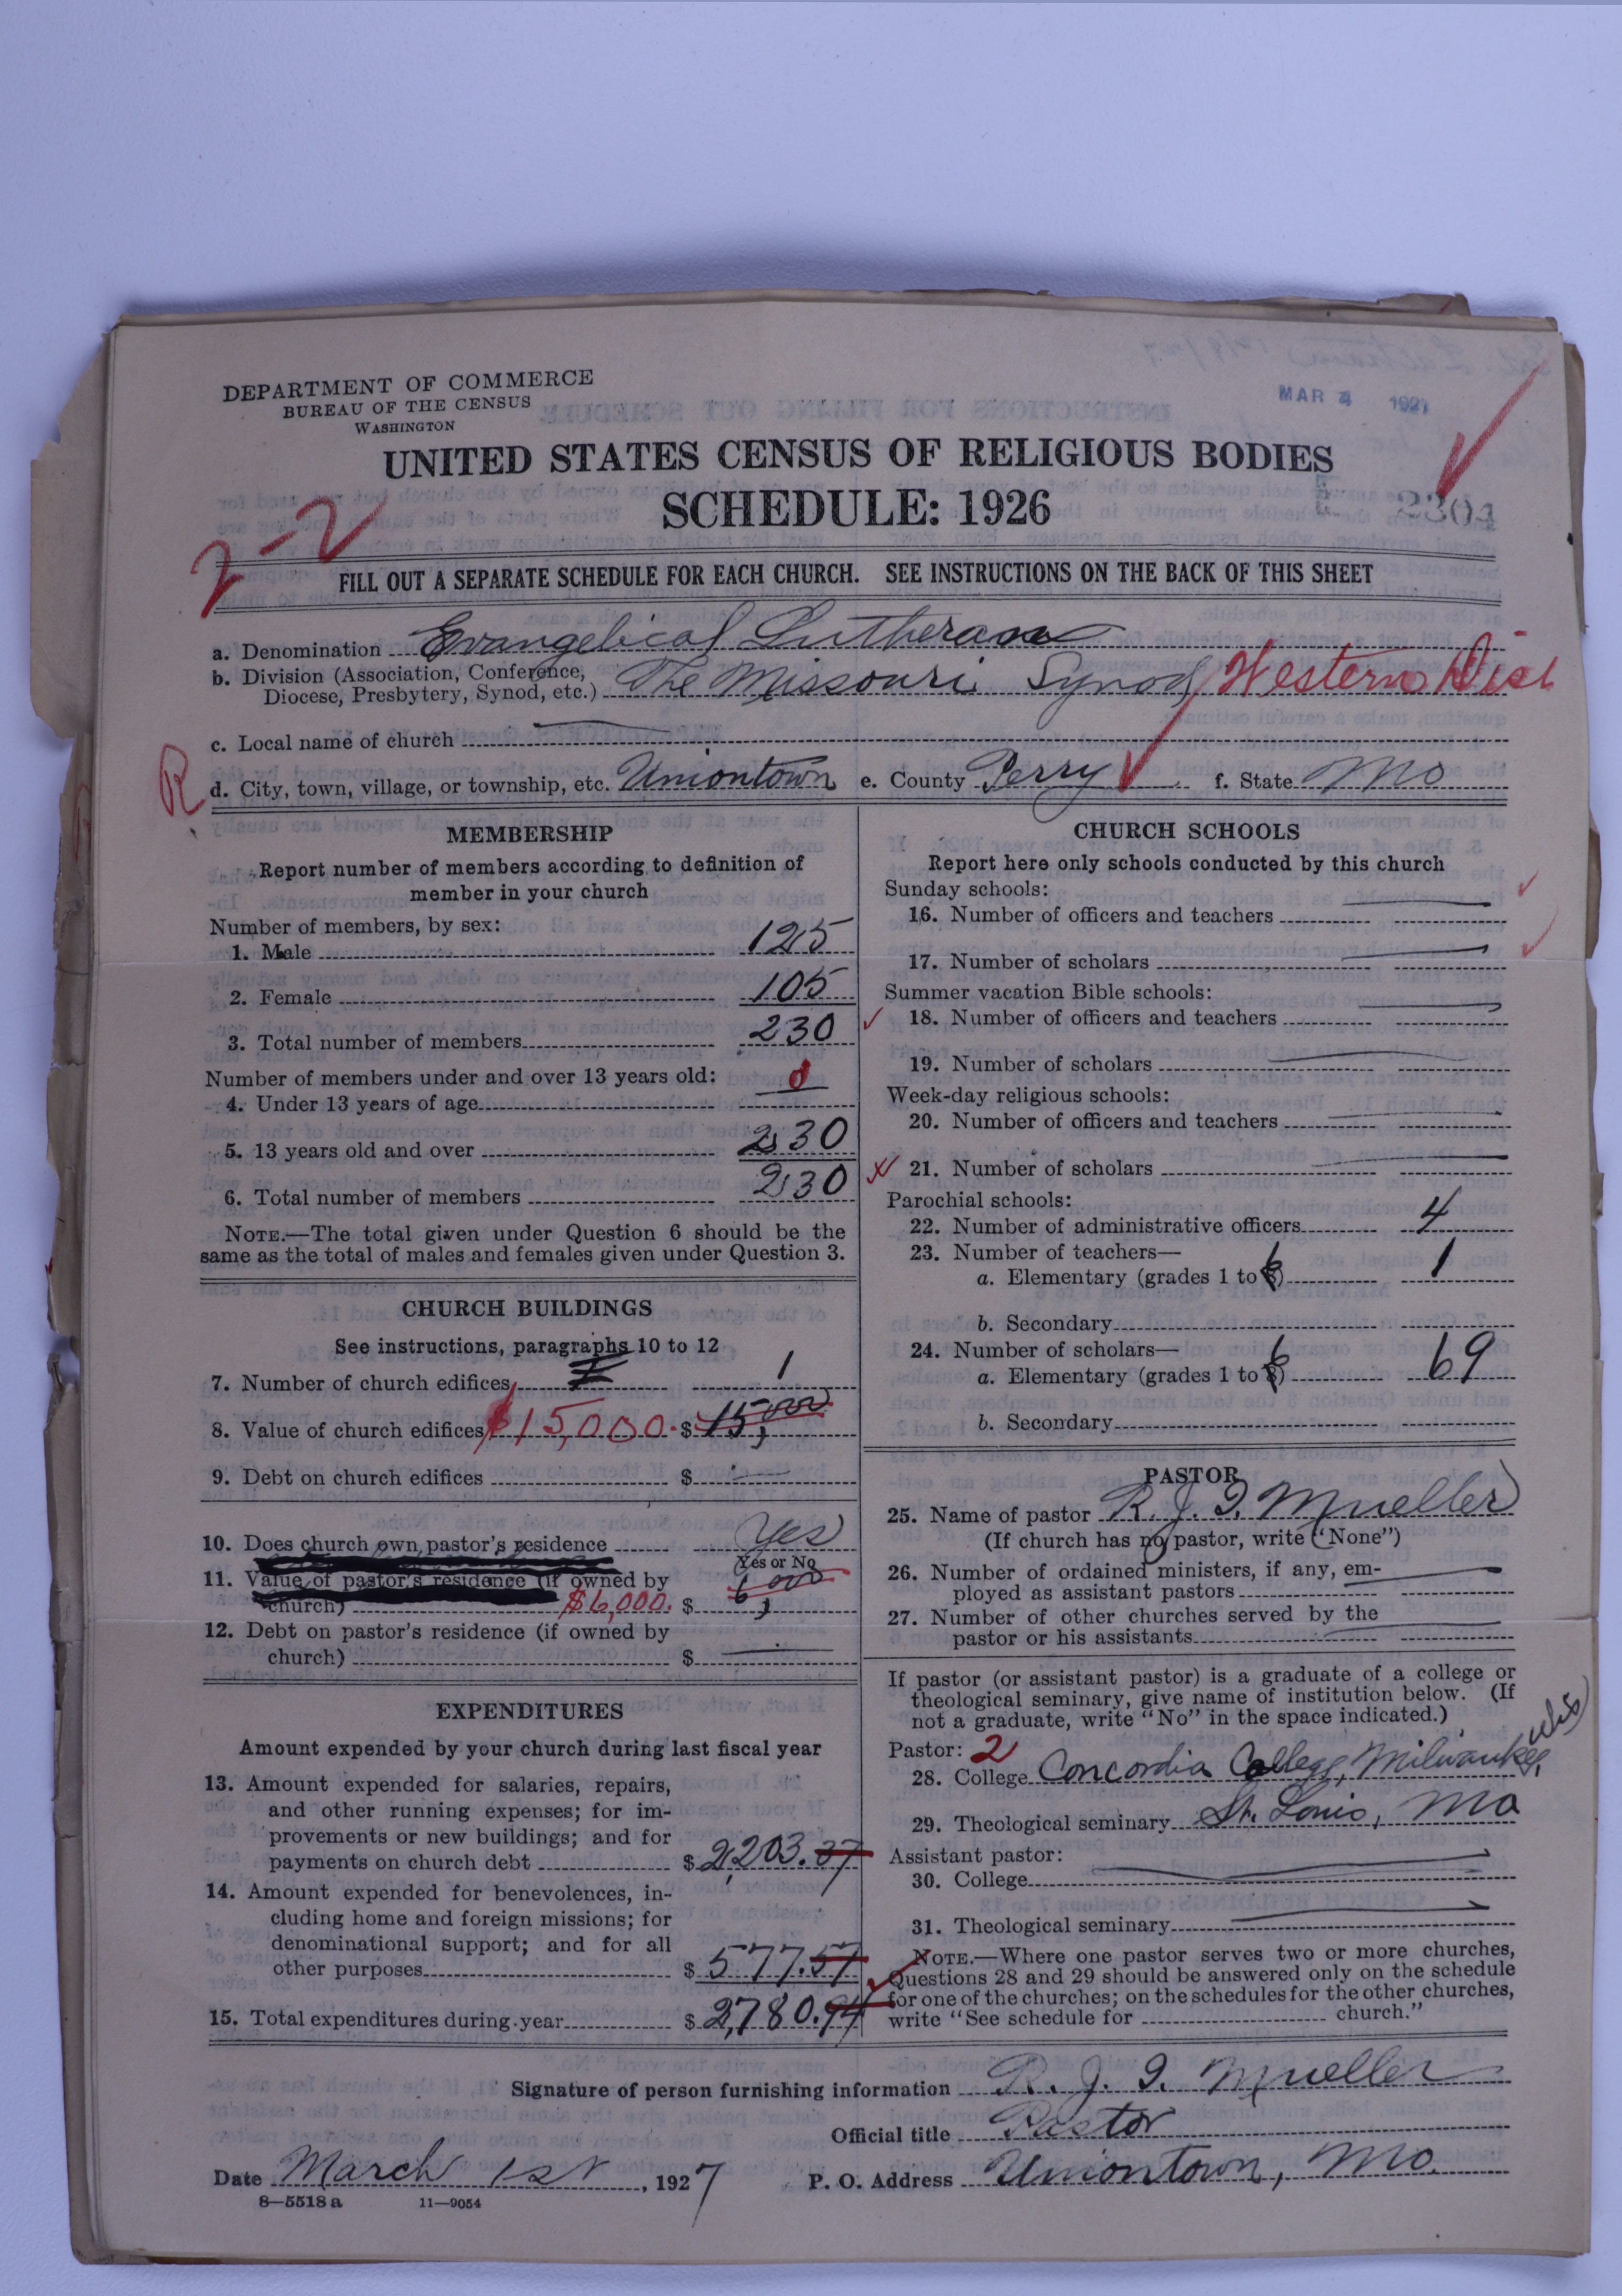 DEPARTMENT OF COMMERCE
BUREAU OF THE CENSUS
WASHINGTON
MAR 4 1927
UNITED STATES CENSUS OF RELIGIOUS BODIES
SCHEDULE: 1926
2-2
FILL OUT A SEPARATE SCHEDULE FOR EACH CHURCH. SEE INSTRUCTIONS ON THE BACK OF THIS SHEET
a. Denomination Evangelical Lutheran
b. Division (Association, Conference,
Diocese, Presbytery, Synod, etc.) The Missouri Synod Western Dist
c. Local name of church
R
d. City, town, village, or township, etc. Uniontown e. County Perry f. State Mo
MEMBERSHIP
Report number of members according to definition of
member in your church
Number of members, by sex:
1. Male 125
2. Female 105
3. Total number of members 230
Number of members under and over 13 years old:
4. Under 13 years of age 0
5. 13 years old and over 230
6. Total number of members 230
NOTE.—The total given under Question 6 should be the
same as the total of males and females given under Question 3.
CHURCH BUILDINGS
See instructions, paragraphs 10 to 12
7. Number of church edifices 1
8. Value of church edifices $15,000. $ 15,000
9. Debt on church edifices $
10. Does church own pastor's residence Yes
Yes or No
11. Value of pastor's residence (if owned by
church) $6,000. $ 6,000
12. Debt on pastor's residence (if owned by
church) $
EXPENDITURES
Amount expended by your church during last fiscal year
13. Amount expended for salaries, repairs,
and other running expenses; for im-
provements or new buildings; and for
payments on church debt $ 2,203.37
14. Amount expended for benevolences, in-
cluding home and foreign missions; for
denominational support; and for all
other purposes $ 577.57
15. Total expenditures during year $ 2,780.94
CHURCH SCHOOLS
Report here only schools conducted by this church
Sunday schools:
16. Number of officers and teachers
17. Number of scholars
Summer vacation Bible schools:
18. Number of officers and teachers
19. Number of scholars
Week-day religious schools:
20. Number of officers and teachers
21. Number of scholars
Parochial schools:
22. Number of administrative officers 4
23. Number of teachers—
a. Elementary (grades 1 to 8) 6 1
b. Secondary
24. Number of scholars—
a. Elementary (grades 1 to 8) 6 69
b. Secondary
PASTOR
25. Name of pastor R. J. I. Mueller
(If church has no pastor, write "None")
26. Number of ordained ministers, if any, em-
ployed as assistant pastors
27. Number of other churches served by the
pastor or his assistants
If pastor (or assistant pastor) is a graduate of a college or
theological seminary, give name of institution below. (If
not a graduate, write "No" in the space indicated.)
Pastor: 2
28. College Concordia College, Milwaukee, Wis
29. Theological seminary St. Louis, Mo
Assistant pastor:
30. College
31. Theological seminary
NOTE.—Where one pastor serves two or more churches,
Questions 28 and 29 should be answered only on the schedule
for one of the churches; on the schedules for the other churches,
write "See schedule for church."
Signature of person furnishing information R. J. I. Mueller
Official title Pastor
Date March 1st, 1927 P. O. Address Uniontown, Mo.
8—5518 a 11—9054